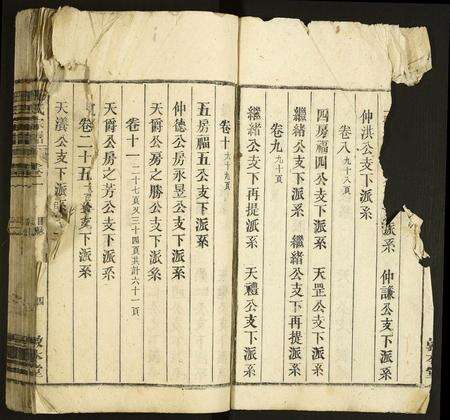 派系 仲謙公支下派系
仲洪公支下派系
卷八 九十八頁
四房福四公支下派系 天罡公支下派系
繼緒公支下派系 繼緒公支下再提派系
卷九 九十頁
繼緒公支下再提派系 天禮公支下派系
卷十 六十九頁
五房福五公支下派系
仲德公房永昱公支下派系
天爵公房之勝公支下派系
卷十一 一二十七頁又三十四頁共計六十一頁
天爵公房之芳公支下派系
卷二十五 公支下派系
天瀁公支下派
四
敦本堂
敦本堂